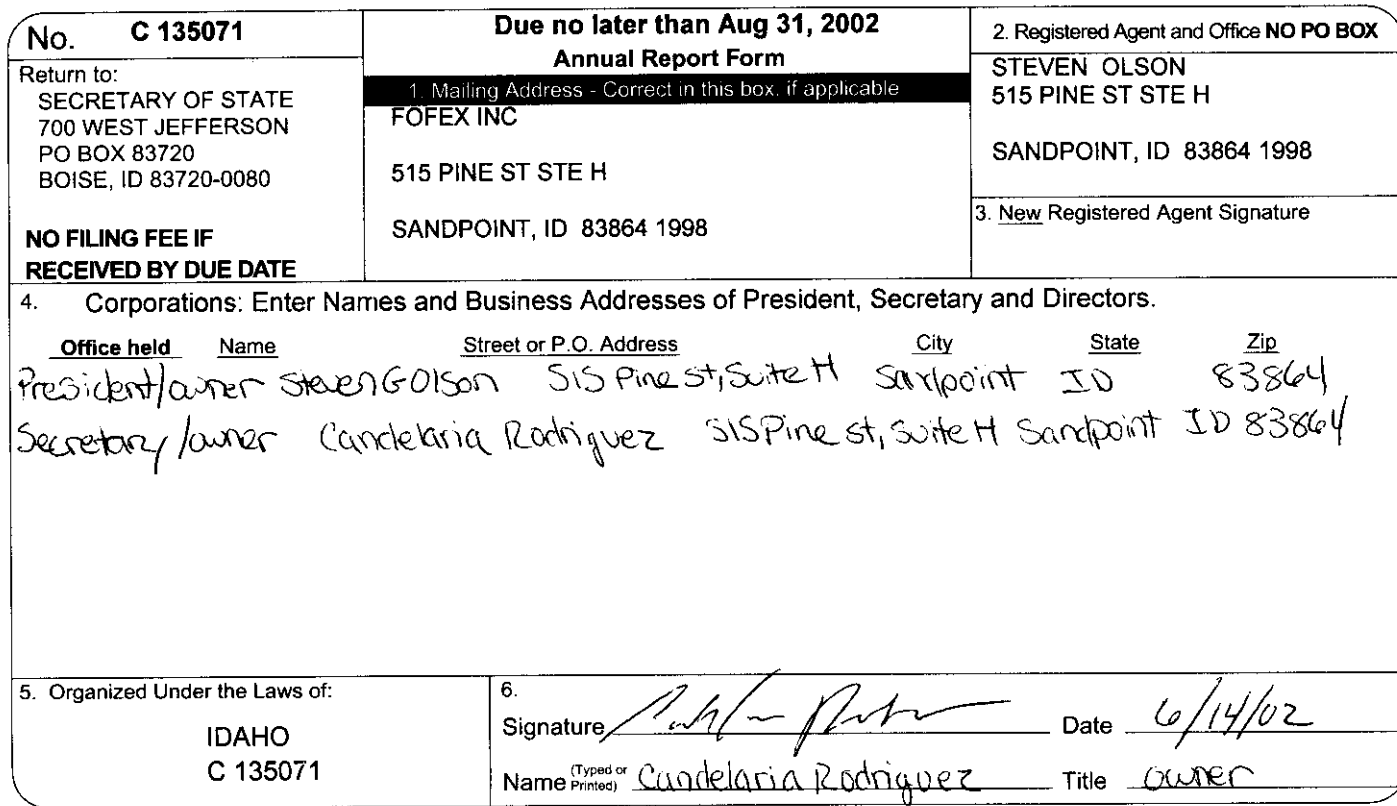 No. C 135071
Return to:
SECRETARY OF STATE
700 WEST JEFFERSON
PO BOX 83720
BOISE, ID 83720-0080
NO FILING FEE IF
RECEIVED BY DUE DATE
Due no later than Aug 31, 2002
Annual Report Form
1. Mailing Address - Correct in this box, if applicable
FOFEX INC
515 PINE ST STE H
SANDPOINT, ID 83864 1998
2. Registered Agent and Office NO PO BOX
STEVEN OLSON
515 PINE ST STE H
SANDPOINT, ID 83864 1998
3. New Registered Agent Signature
4. Corporations: Enter Names and Business Addresses of President, Secretary and Directors.
Office held Name Street or P.O. Address City State Zip
President/owner Steven G Olson 515 Pine st, Suite H Sandpoint ID 83864
Secretary/owner Candelaria Rodriguez 515 Pine st, Suite H Sandpoint ID 83864
5. Organized Under the Laws of:
IDAHO
C 135071
6.
Signature Date 6/14/02
Name (Typed or Printed) Candelaria Rodriguez Title owner